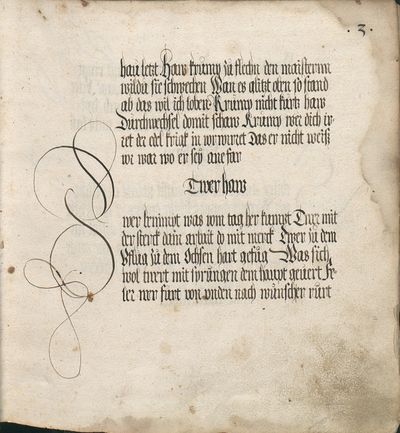 3
hau letzt Haw krump zu flechn den maisternn
wildu sie schwechen Wan es glitzt oben so stand
ab das wil ich loben Krump nicht kurtz haw
Durchwechsel domit schaw Krump wer dich ir
ret der edel krigk in vor wirret Das er nicht weiß
wi war wo er sey ane far
Twer haw
wer benimpt was vom tag her kumpt Twer mit
der sterck dain arbait do mit merck Twer zu dem
Pflug zu dem Ochsen hart gefug Was sich
wol twert mit sprungen dem haupt gevert Fe
ler wer furt von vnden nach wunscher rurt